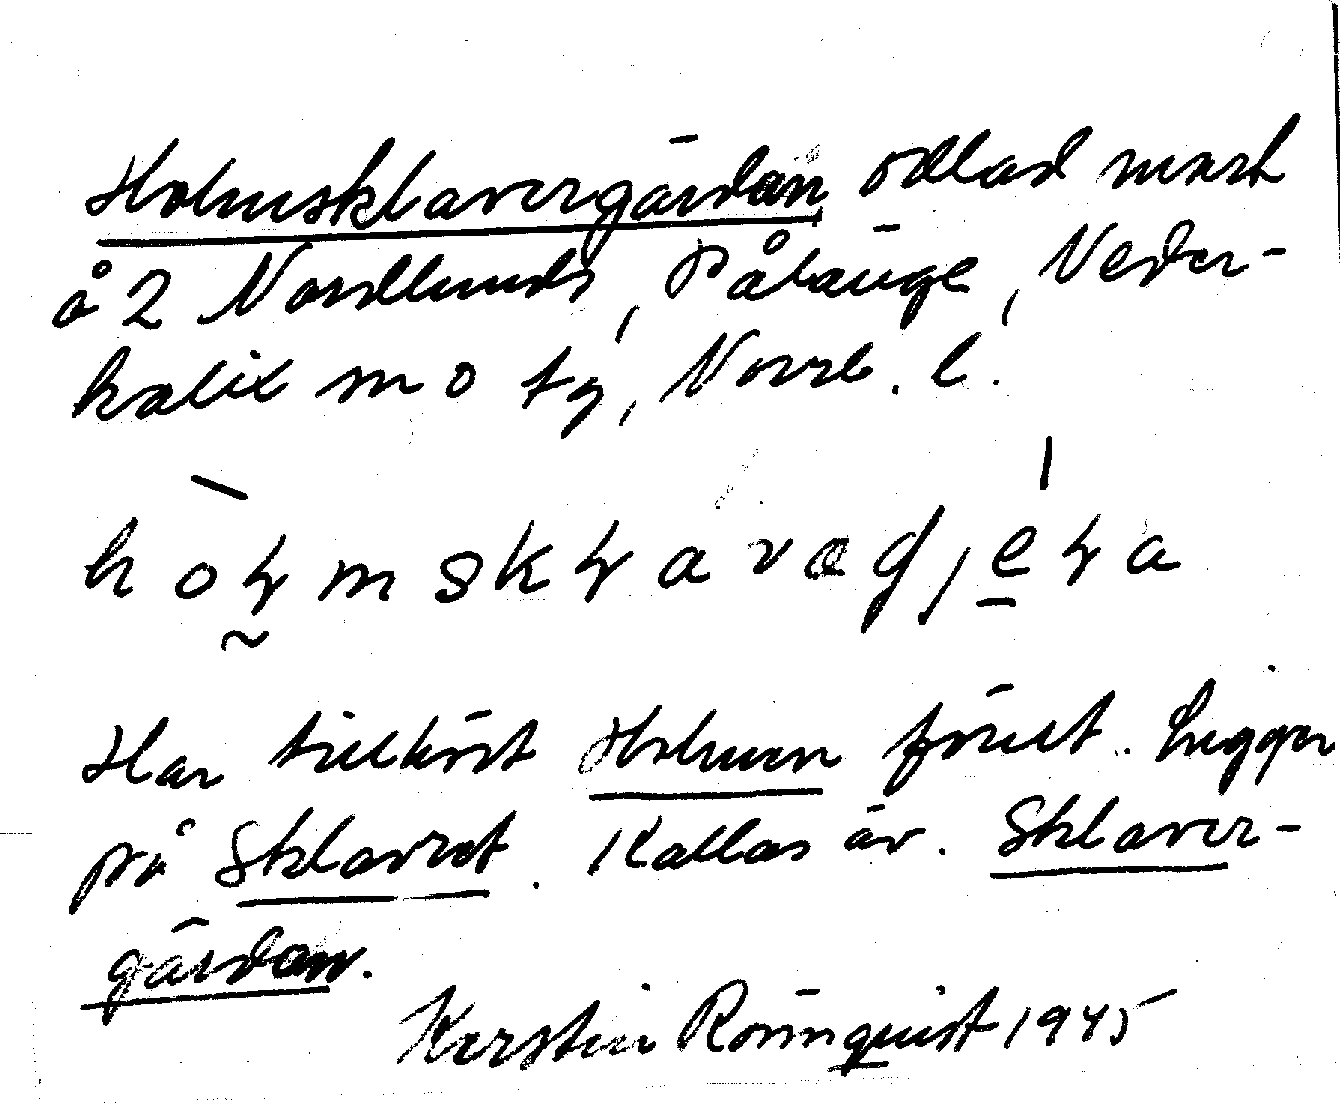 Holmsklavergärdan, odlad mark
å 2 Nordlunds, Påläuge, Neder-
kalix m o tg, Norrb. l.
hòḷmskḷavægjéḷa
Har tillhört Holmen förut. Ligger
på Sklavret. Kallas äv. Sklaver-
gärdan.
Kerstin Rönnquist 1945